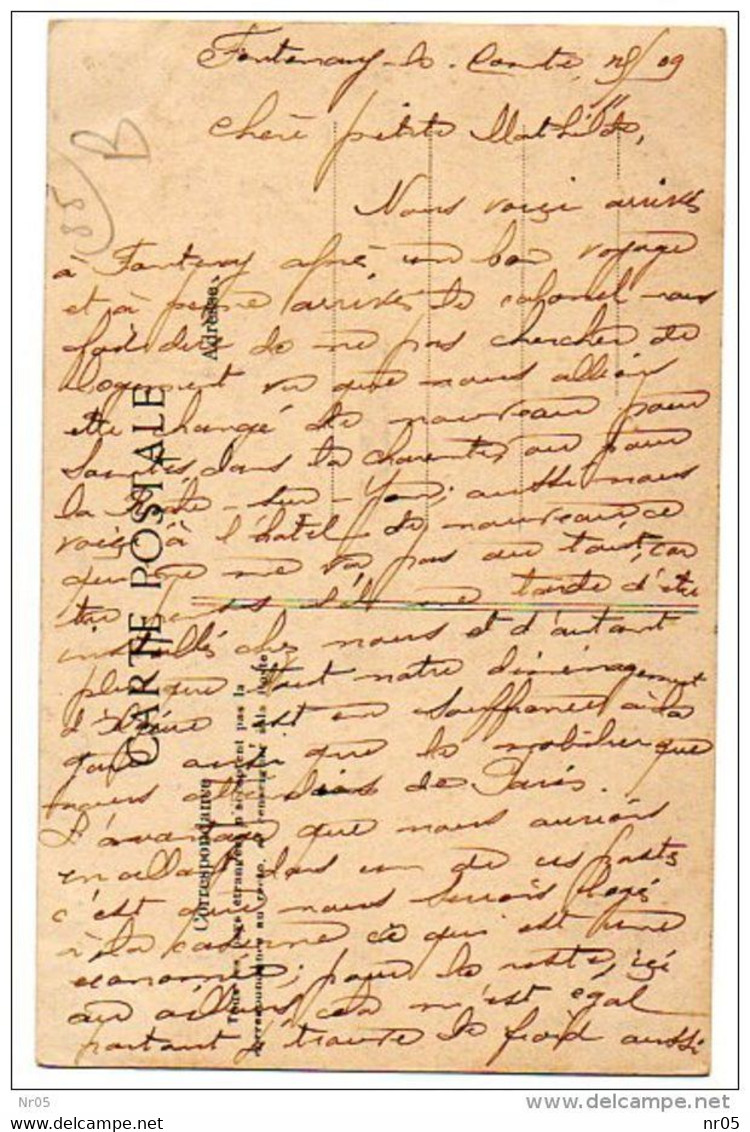 Fontenay-le-Comte, /09
Chère petite Mathilde,
Nous voici arrivés
à Fontenay après un bon voyage
et à peine arrivés le colonel nous
fait dire de ne pas chercher de
logement vu que nous allions
être changé de nouveau pour
Saintes dans la Charente, ou pour
la Roche-sur-Yon; aussi nous
voici à l'hôtel de nouveau ce
qui ne me va pas du tout, car
tu penses s'il me tarde d'être
installés chez nous et d'autant
plus que tout notre déménagement
est en souffrance à la
gare ainsi que le mobilier que
nous attendions de Paris.
L'avantage que nous aurions
en allant dans un de ces postes
c'est que nous serions logés
à la caserne ce qui est une
économie; pour le reste, ici
ou ailleurs cela m'est égal
partout je trouve le froid aussi
85
B
CARTE POSTALE
Correspondance
Adresse
Tous les pays étrangers n'acceptent pas la
correspondance au recto, se renseigner à la Poste
Nr05
delcampe.net
www.delcampe.com
nr05